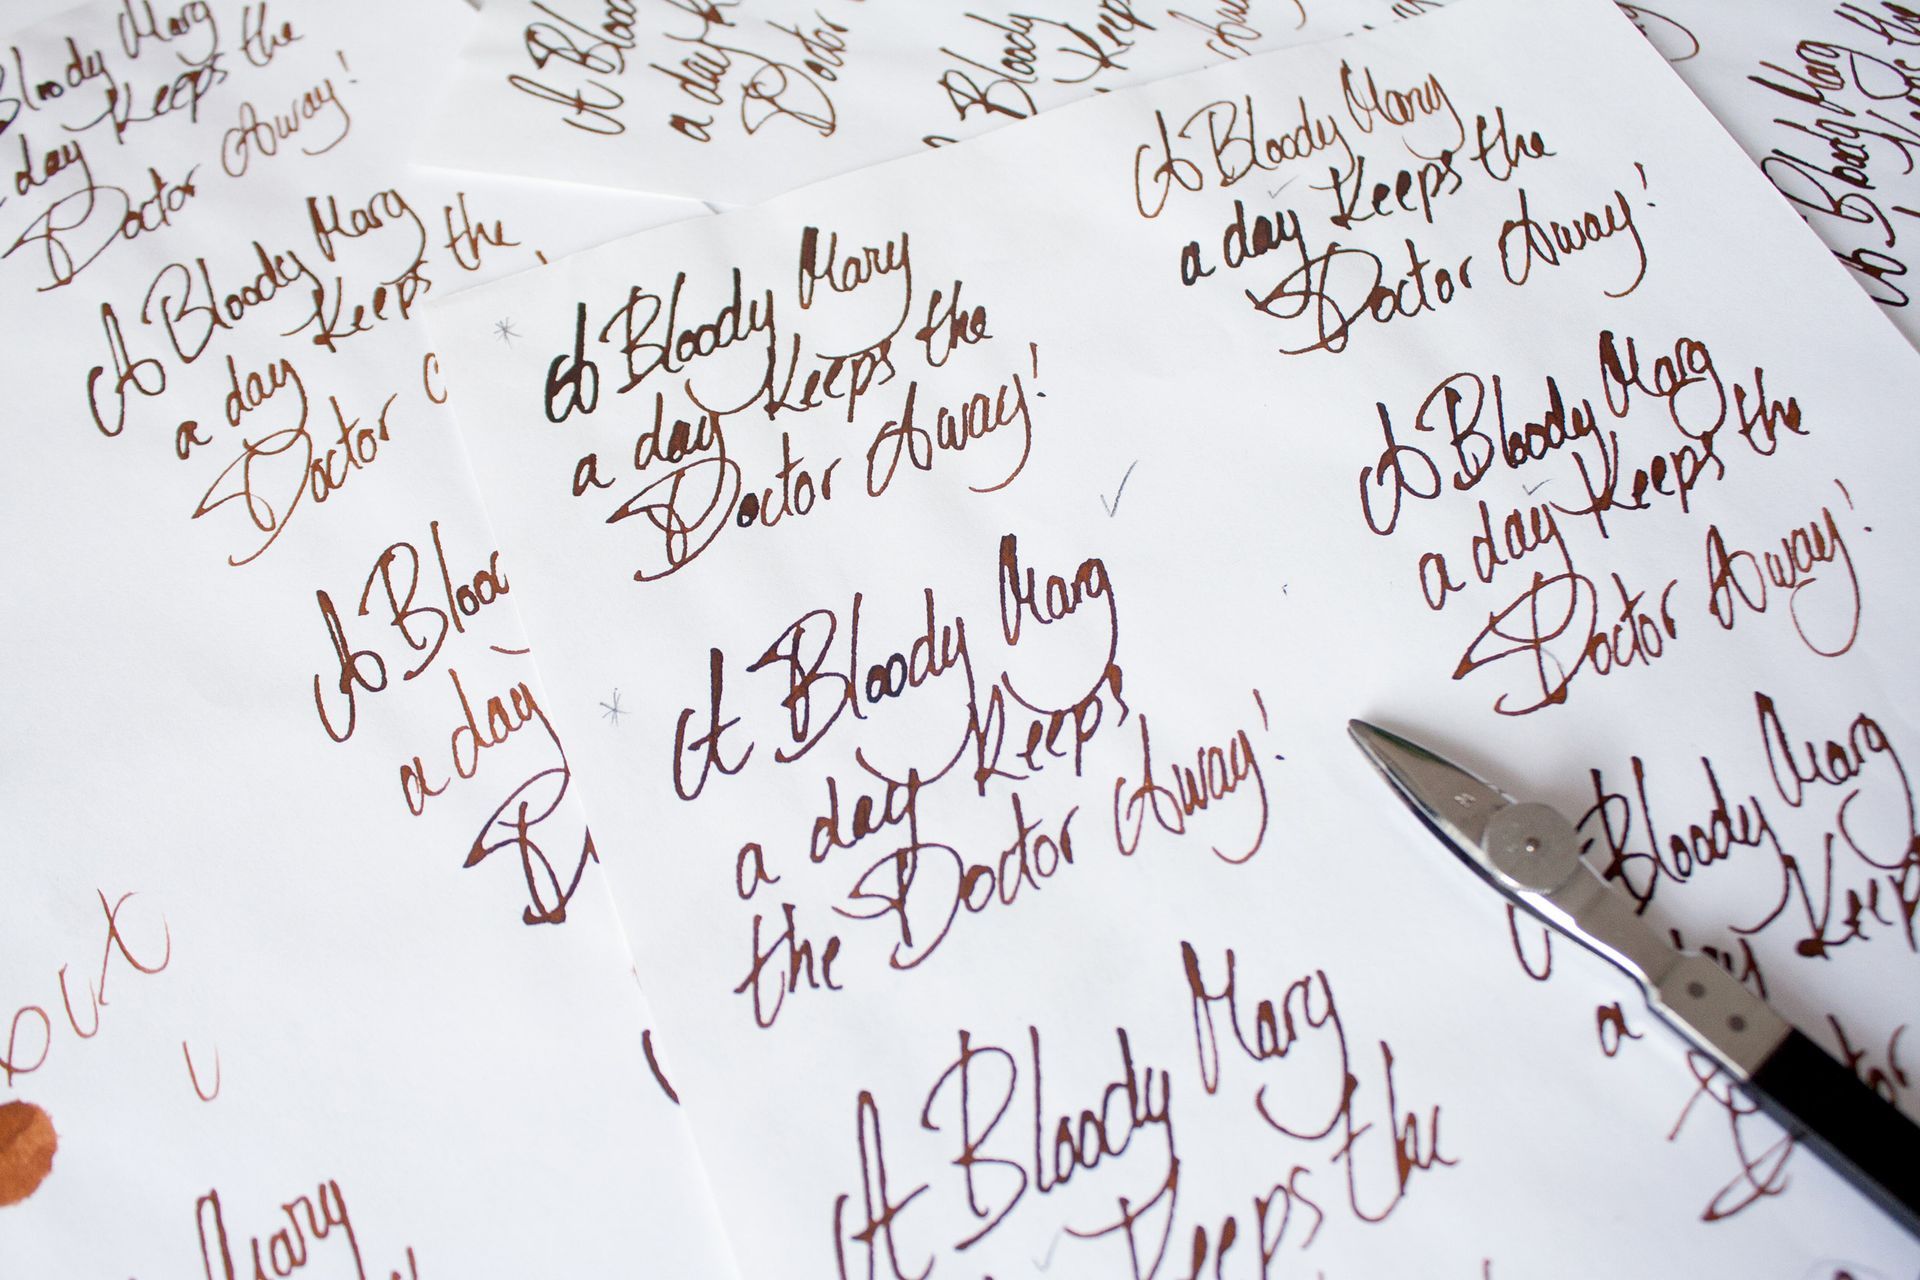 Bloody Mary
day Keeps the
Doctor Away!
A Bloody Mary
a day Keeps the
Doctor
A Bloody
a day
A Bloody
a day
Doctor
Bloody
Keeps
A Bloody Mary
a day Keeps the
Doctor Away!
A Bloody Mary
a day Keeps
the Doctor Away!
A Bloody Mary
Keeps the
A Bloody Mary
a day Keeps the
Doctor Away!
A Bloody Mary
a day Keeps the
Doctor Away!
Bloody Mary
Keeps
a
A Bloody Mary
Keeps the
out
Mary